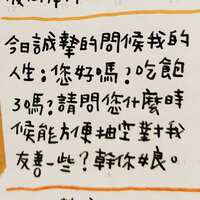 今日誠摯的問候我的
人生:您好嗎?吃飽
3嗎?請問您什麼時
候能方便抽空對我
友善一些?幹你娘。